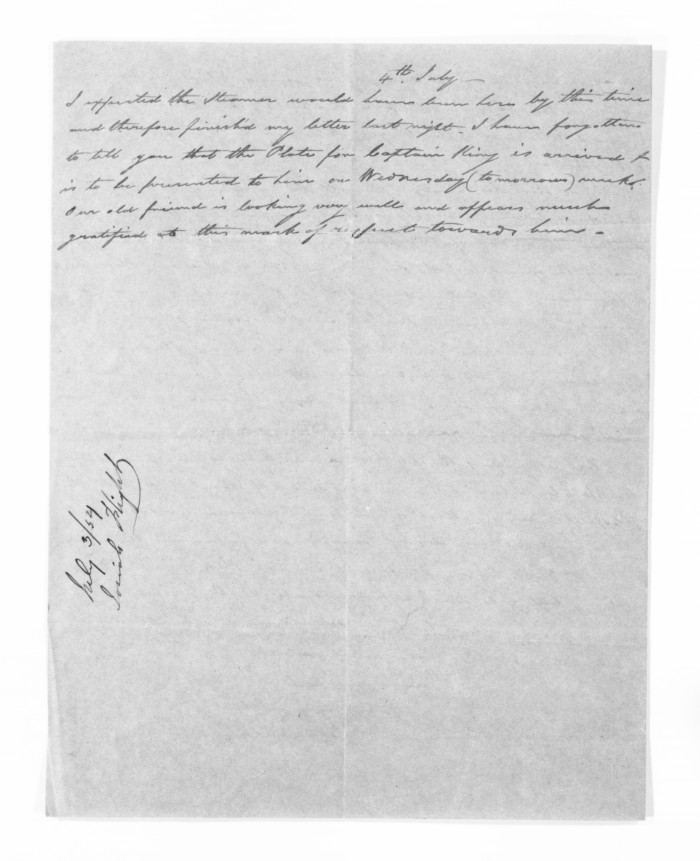 4th July —
I expected the Steamer would have been here by this time
and therefore finished my letter last night. I have forgotten
to tell you that the Plate for Captain King is arrived &
is to be presented to him on Wednesday (tomorrow) week.
Our old friend is looking very well and appears much
gratified at this mark of respect towards him.
July 3/54
Josiah Flight